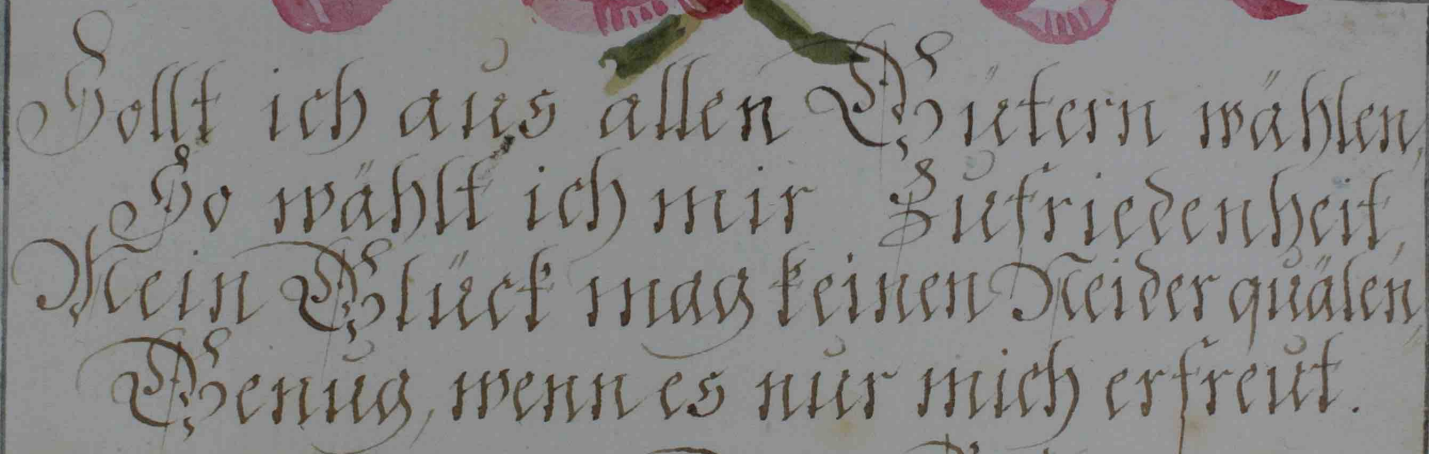 Sollt ich aus allen Gütern wählen,
So wählt ich mir Zufriedenheit,
Mein Glück mag keinen Neider quälen,
Genug, wenn es nur mich erfreut.